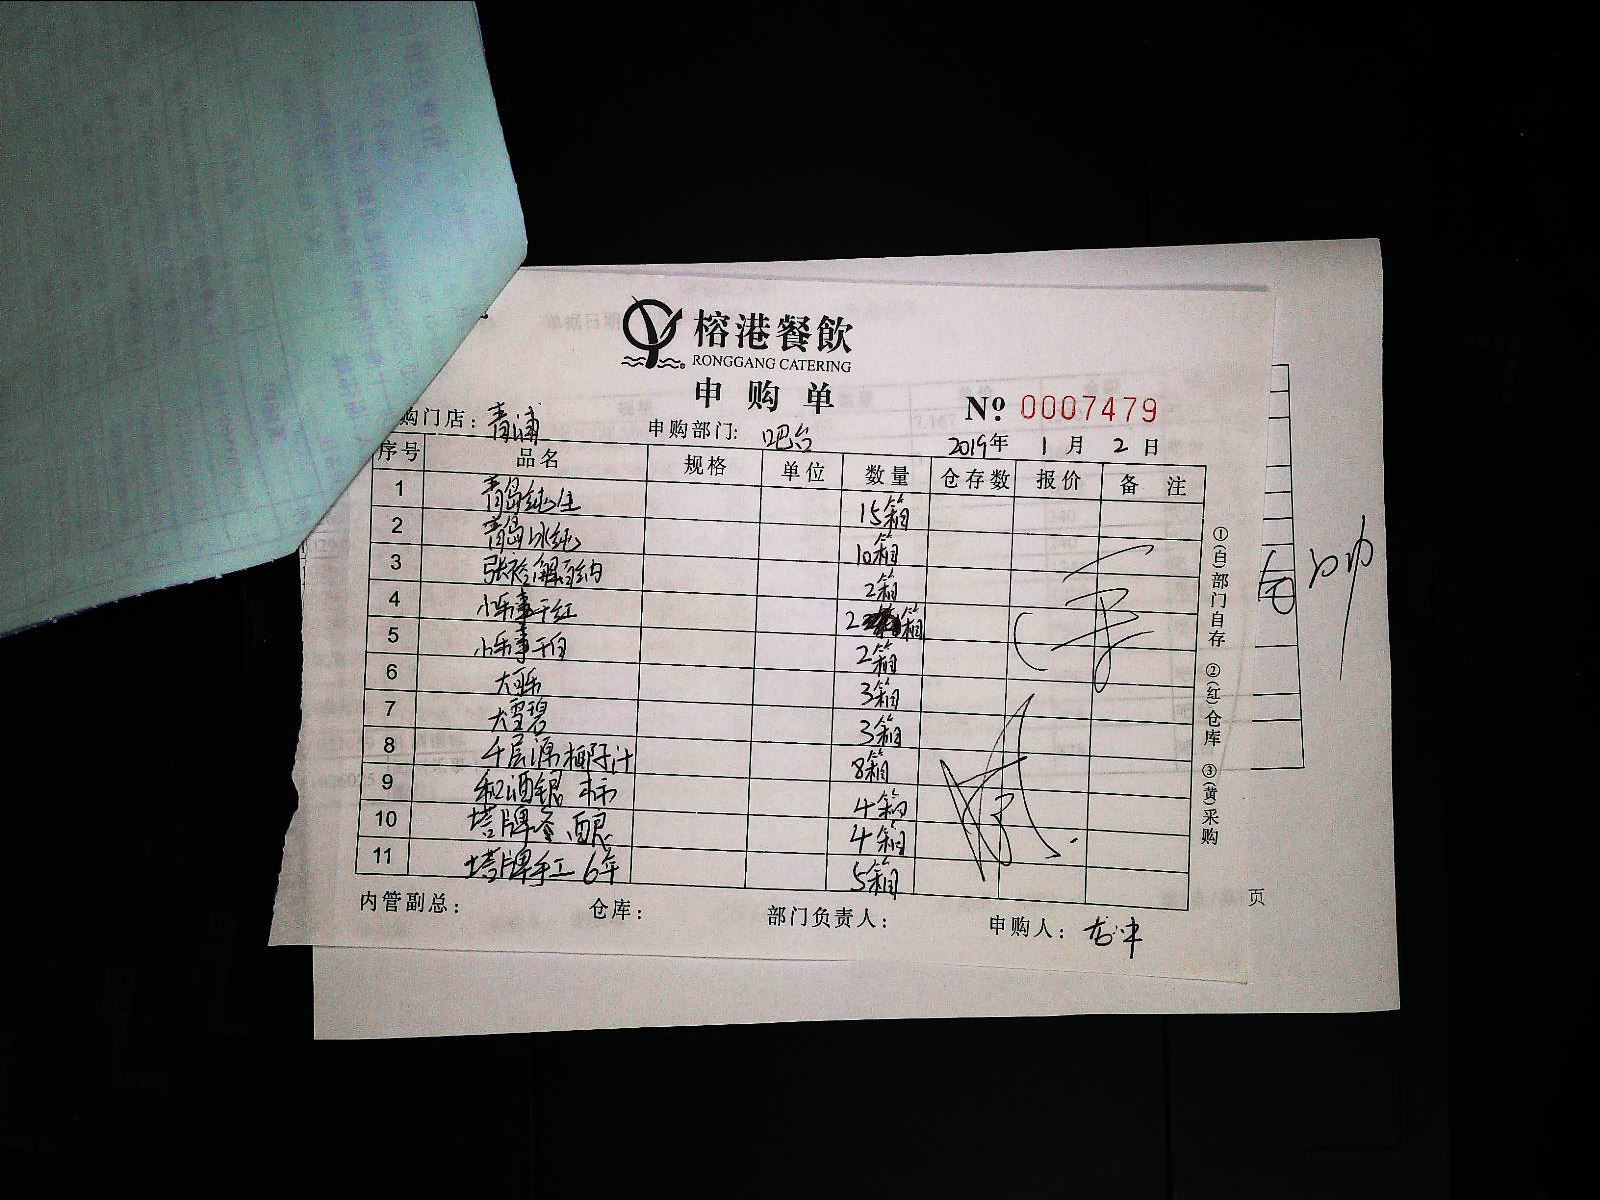 榕港餐飲
RONGGANG CATERING
申购单
№ 0007479
购门店：青浦 申购部门：吧台 2019年 1月 2日
序号 品名 规格 单位 数量 仓存数 报价 备注
1 青岛纯生 15箱
2 青岛冰纯 10箱
3 张裕解百纳 2箱
4 小乐事干红 2箱
5 小乐事干白 2箱
6 大可乐 3箱
7 大雪碧 3箱
8 千层源椰汁 8箱
9 和酒银标 4箱
10 塔牌 酿 4箱
11 塔牌手工6年 5箱
内管副总： 仓库： 部门负责人： 申购人：
①(白)部门自存 ②(红)仓库 ③(黄)采购
页